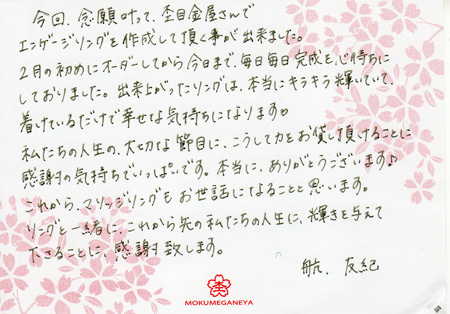 今回、念願叶って、杢目金屋さんで
エンゲージリングを作成して頂く事が出来ました。
2月の初めにオーダーしてから今日まで、毎日毎日完成を心待ちに
しておりました。出来上がったリングは、本当にキラキラ輝いていて、
着けているだけで幸せな気持ちになります♡
私たちの人生の、大切な節目に、こうして力をお貸し頂けることに
感謝の気持ちでいっぱいです。本当に、ありがとうございます♪
これから、マリッジリングもお世話になることと思います。
リングと一緒に、これから先の私たちの人生に、輝きを与えて
下さることに、感謝致します。
航、友紀
MOKUMEGANEYA